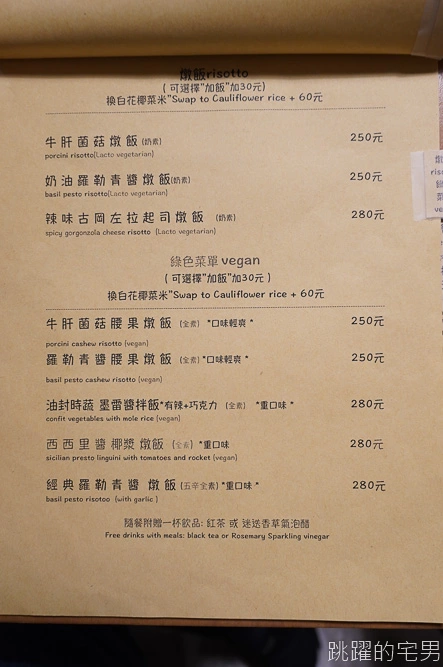 燉飯risotto
( 可選擇"加飯"加30元)
換白花椰菜米"Swap to Cauliflower rice + 60元
牛肝菌菇燉飯 (奶素) 250元
porcini risotto(Lacto vegetarian)
奶油羅勒青醬燉飯(奶素) 250元
basil pesto risotto(Lacto vegetarian)
辣味古岡左拉起司燉飯 (奶素) 280元
spicy gorgonzola cheese risotto (Lacto vegetarian)
綠色菜單 vegan
( 可選擇"加飯"加30元 )
換白花椰菜米"Swap to Cauliflower rice + 60元
牛肝菌菇腰果燉飯 (全素) *口味輕爽 * 250元
porcini cashew risotto (vegan)
羅勒青醬腰果燉飯 (全素) *口味輕爽 * 250元
basil pesto cashew risotto (vegan)
油封時蔬 墨雷醬拌飯*有辣+巧克力 (全素) *重口味 * 280元
confit vegetables with mole rice (vegan)
西西里醬椰漿燉飯 (全素) *重口味 280元
sicilian presto linguini with tomatoes and rocket (vegan)
經典羅勒青醬 燉飯 (五辛全素) *重口味 * 280元
basil pesto risotoo (with garlic )
隨餐附贈一杯飲品: 紅茶 或 迷迭香草氣泡醋
Free drinks with meals: black tea or Rosemary Sparkling vinegar
跳躍的宅男